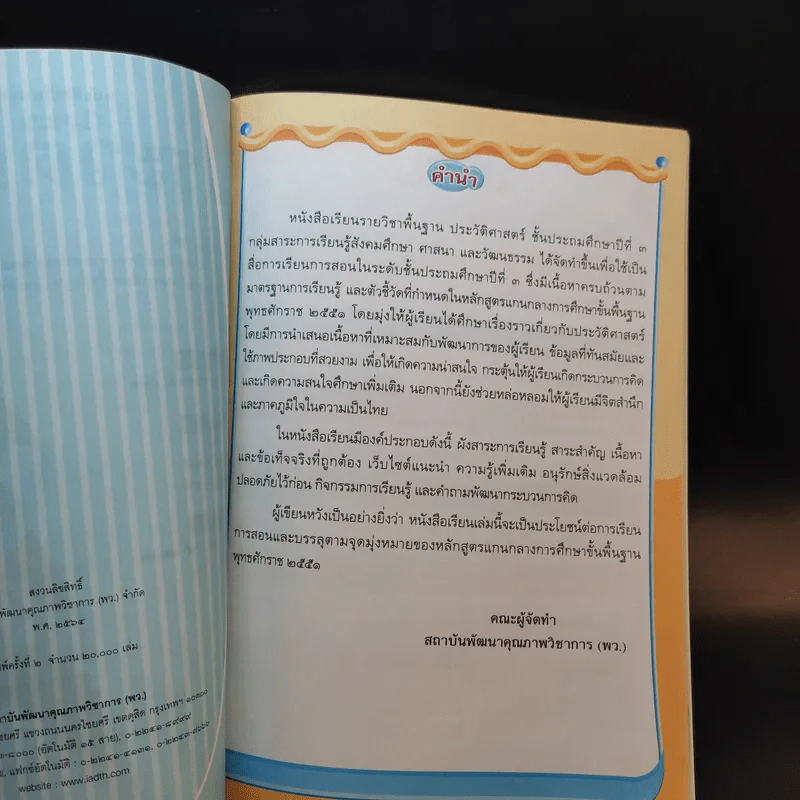 สงวนลิขสิทธิ์
พัฒนาคุณภาพวิชาการ (พว.) จำกัด
พ.ศ. ๒๕๖๔
พ์ครั้งที่ ๒ จำนวน ๒๐,๐๐๐ เล่ม
าบันพัฒนาคุณภาพวิชาการ (พว.)
ชัยศรี แขวงถนนนครไชยศรี เขตดุสิต กรุงเทพฯ ๑๐๓๐๐
-๘๐๐๐ (อัตโนมัติ ๑๕ สาย), ๐-๒๒๔๑-๘๙๙๙
แฟกซ์อัตโนมัติ : ๐-๒๒๔๑-๔๑๓๑, ๐-๒๒๔๓-๗๖๖๖
website : www.iadth.com
คำนำ
หนังสือเรียนรายวิชาพื้นฐาน ประวัติศาสตร์ ชั้นประถมศึกษาปีที่ ๓
กลุ่มสาระการเรียนรู้สังคมศึกษา ศาสนา และวัฒนธรรม ได้จัดทำขึ้นเพื่อใช้เป็น
สื่อการเรียนการสอนในระดับชั้นประถมศึกษาปีที่ ๓ ซึ่งมีเนื้อหาครบถ้วนตาม
มาตรฐานการเรียนรู้ และตัวชี้วัดที่กำหนดในหลักสูตรแกนกลางการศึกษาขั้นพื้นฐาน
พุทธศักราช ๒๕๕๑ โดยมุ่งให้ผู้เรียนได้ศึกษาเรื่องราวเกี่ยวกับประวัติศาสตร์
โดยมีการนำเสนอเนื้อหาที่เหมาะสมกับพัฒนาการของผู้เรียน ข้อมูลที่ทันสมัยและ
ใช้ภาพประกอบที่สวยงาม เพื่อให้เกิดความน่าสนใจ กระตุ้นให้ผู้เรียนเกิดกระบวนการคิด
และเกิดความสนใจศึกษาเพิ่มเติม นอกจากนี้ยังช่วยหล่อหลอมให้ผู้เรียนมีจิตสำนึก
และภาคภูมิใจในความเป็นไทย
ในหนังสือเรียนมีองค์ประกอบดังนี้ ผังสาระการเรียนรู้ สาระสำคัญ เนื้อหา
และข้อเท็จจริงที่ถูกต้อง เว็บไซต์แนะนำ ความรู้เพิ่มเติม อนุรักษ์สิ่งแวดล้อม
ปลอดภัยไว้ก่อน กิจกรรมการเรียนรู้ และคำถามพัฒนากระบวนการคิด
ผู้เขียนหวังเป็นอย่างยิ่งว่า หนังสือเรียนเล่มนี้จะเป็นประโยชน์ต่อการเรียน
การสอนและบรรลุตามจุดมุ่งหมายของหลักสูตรแกนกลางการศึกษาขั้นพื้นฐาน
พุทธศักราช ๒๕๕๑
คณะผู้จัดทำ
สถาบันพัฒนาคุณภาพวิชาการ (พว.)